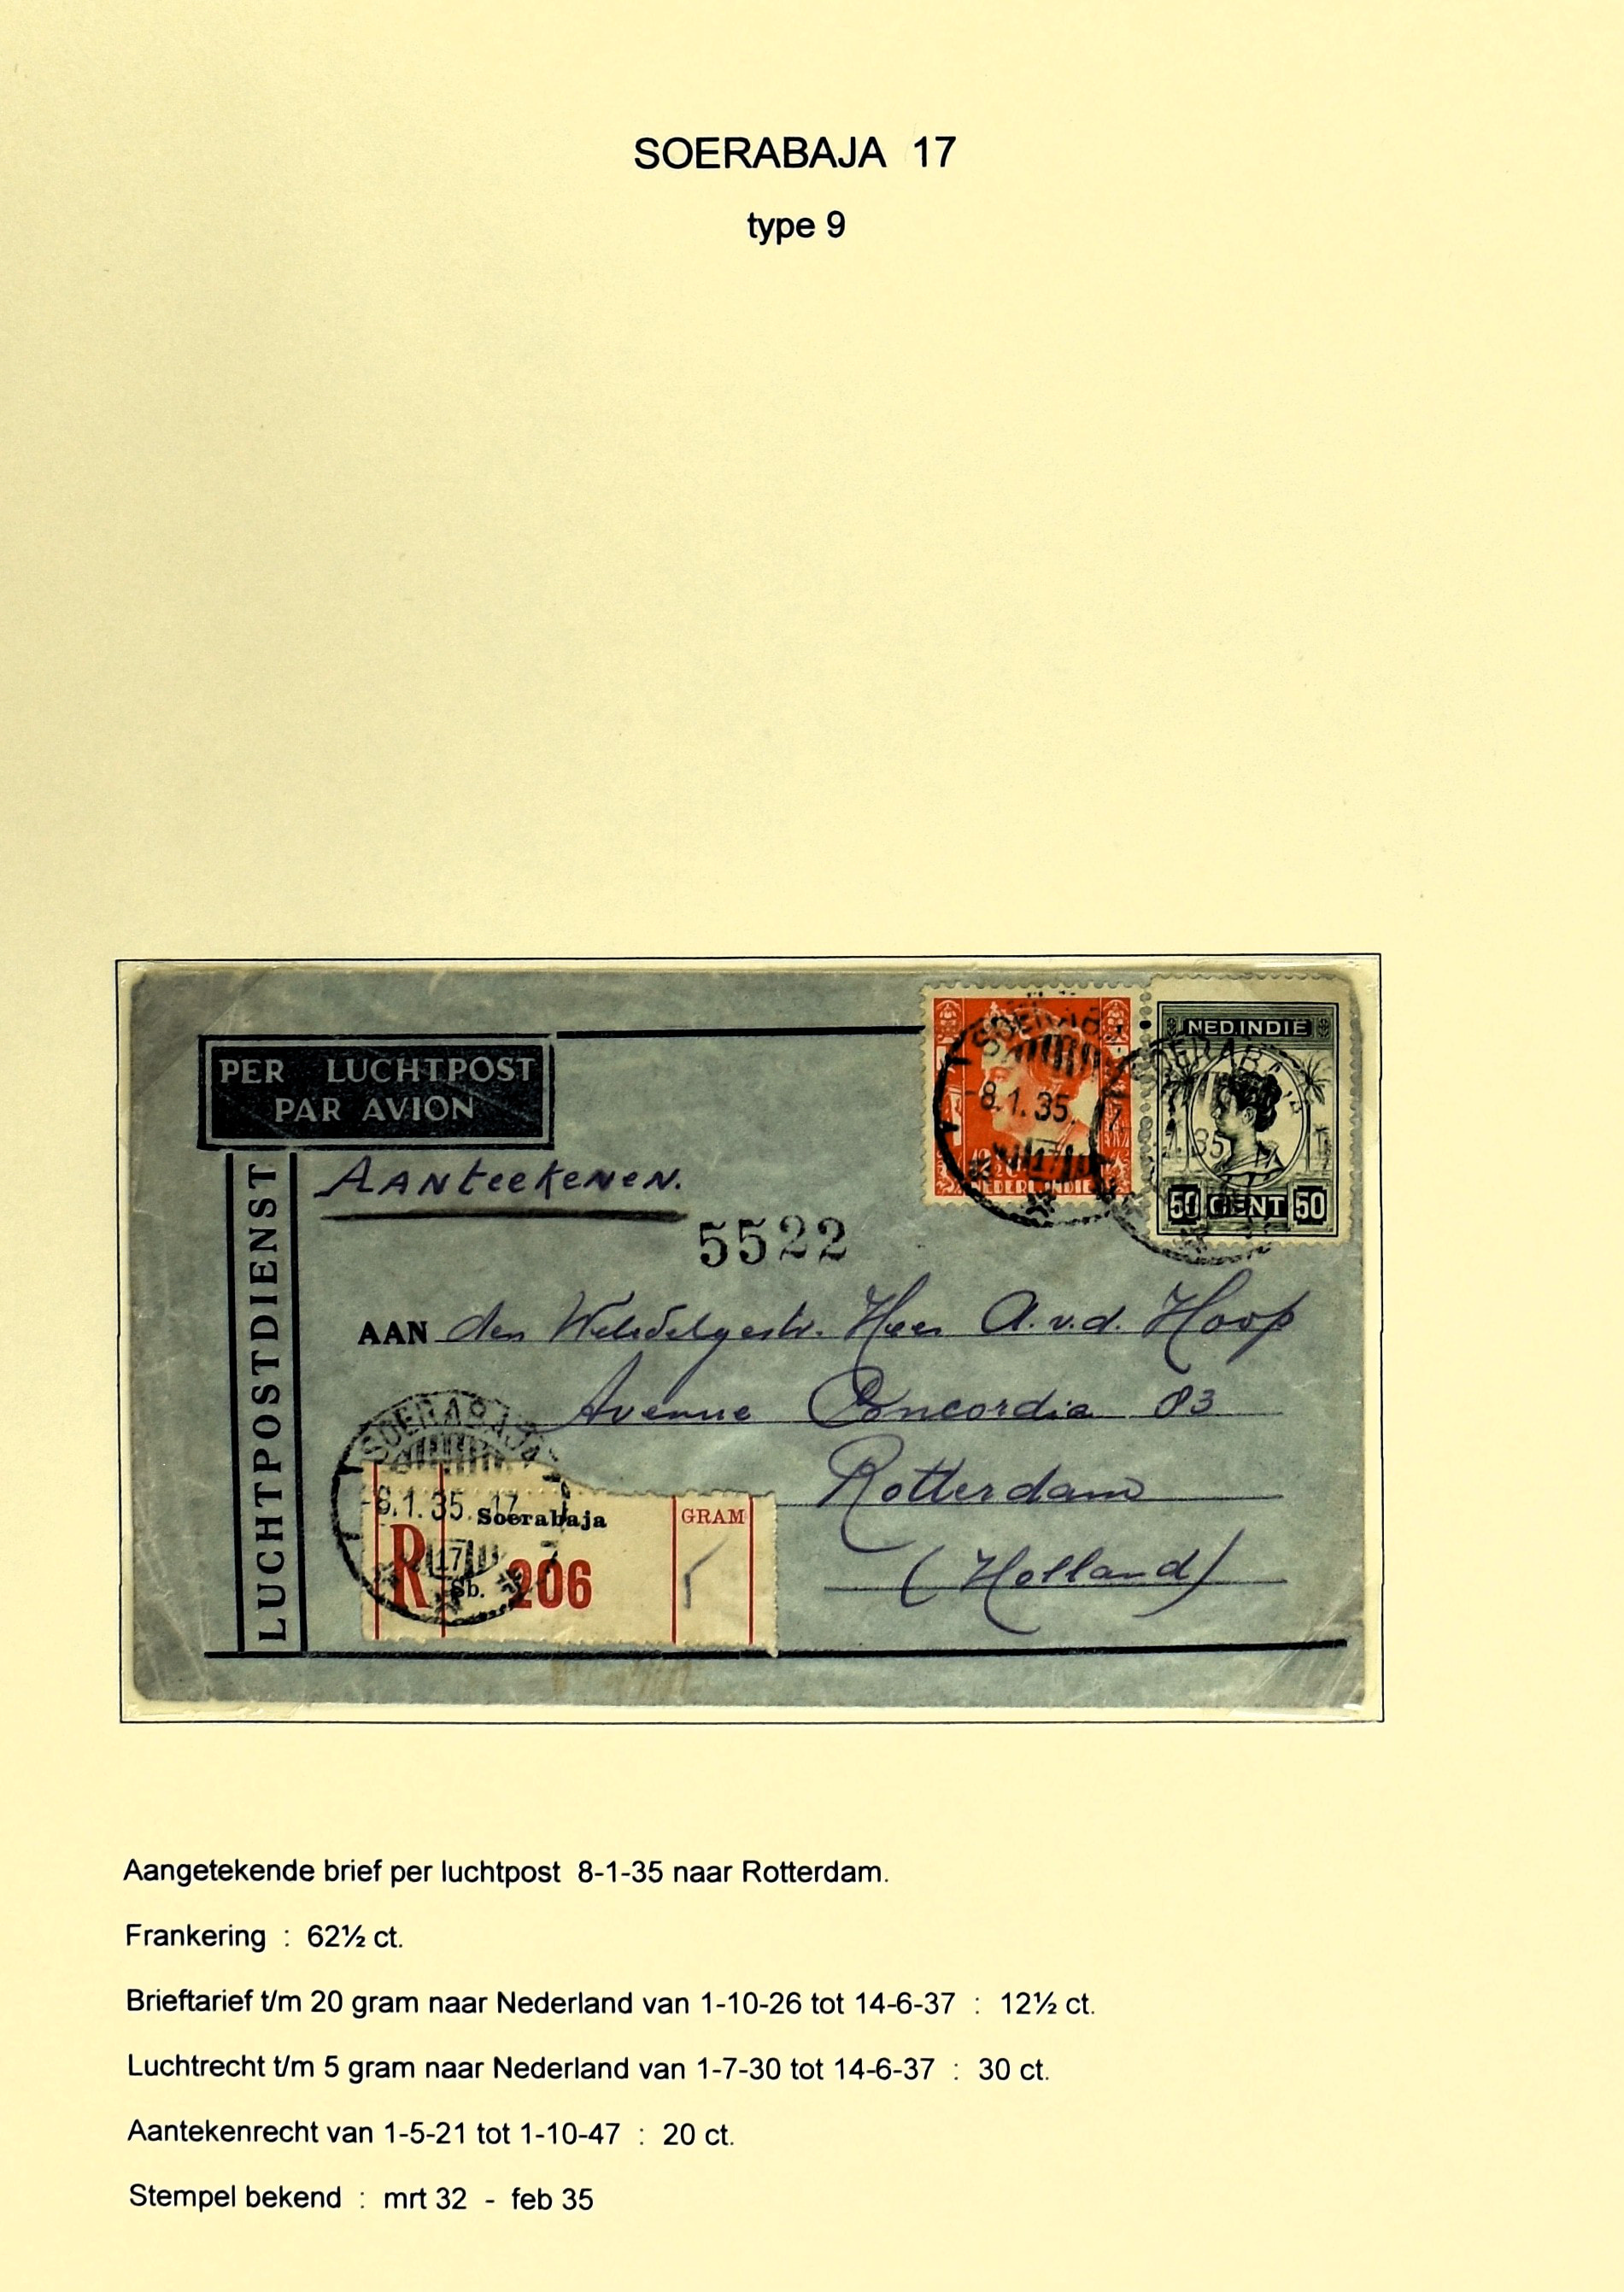 SOERABAJA 17
type 9
PER LUCHTPOST
PAR AVION
LUCHTPOSTDIENST
Aanteekenen.
5522
SOERAB
-8.1.35.
17
NEDERL. INDIE
NED.INDIE
ERABA
.35
50 CENT 50
AAN den Weledelgestr. Heer A.v.d. Hoop
Avenue Concordia 83
Rotterdam
(Holland)
SOERABAJA
-8.1.35. 17
17
Soerabaja
R Sb. 206
GRAM
5
Aangetekende brief per luchtpost 8-1-35 naar Rotterdam.
Frankering : 62½ ct.
Brieftarief t/m 20 gram naar Nederland van 1-10-26 tot 14-6-37 : 12½ ct.
Luchtrecht t/m 5 gram naar Nederland van 1-7-30 tot 14-6-37 : 30 ct.
Aantekenrecht van 1-5-21 tot 1-10-47 : 20 ct.
Stempel bekend : mrt 32 - feb 35